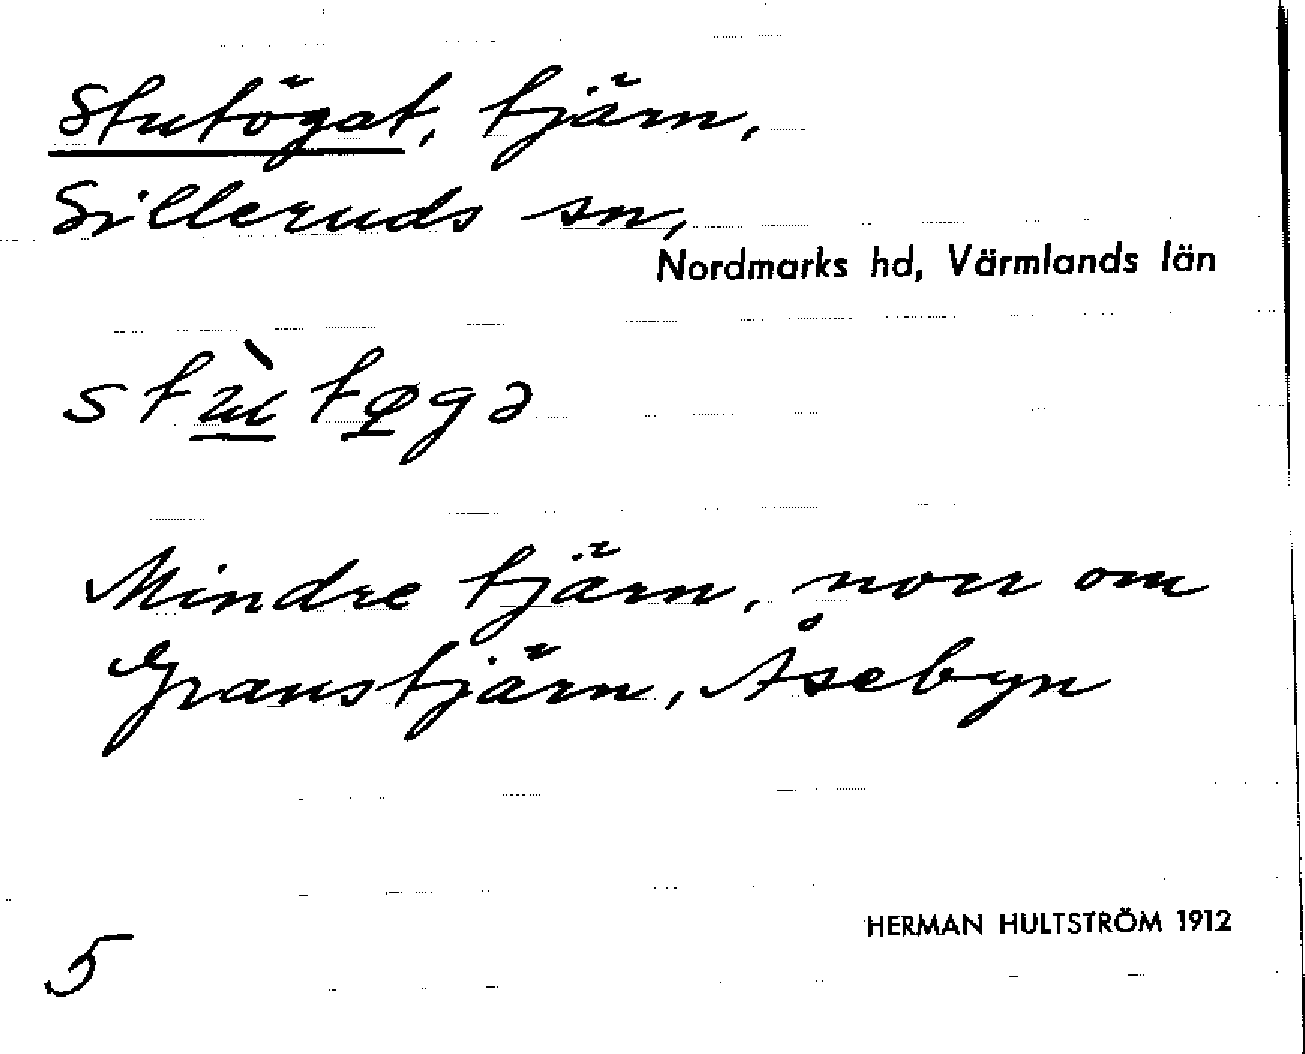 Stutögat, tjärn,
Silleruds sn,
Nordmarks hd, Värmlands län
stù̲tø̲gə
Mindre tjärn, norr om
Granstjärn, Åsebyn
HERMAN HULTSTRÖM 1912
5